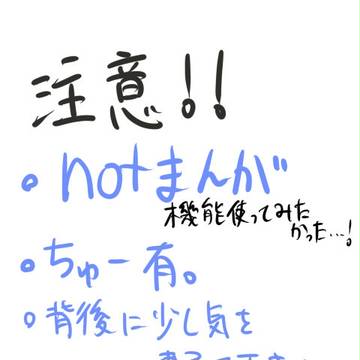 注意!!
。notまんが
機能使ってみた
かった…!
。ちゅー有。
。背後に少し気を